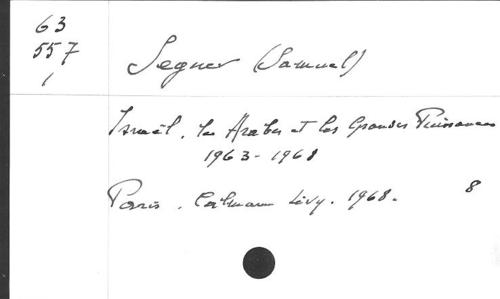 63
557
1
Segner (Samuel)
Israël, les Arabes et les Grandes Puissances
1963-1968
Paris. Calmann Lévy. 1968. 8